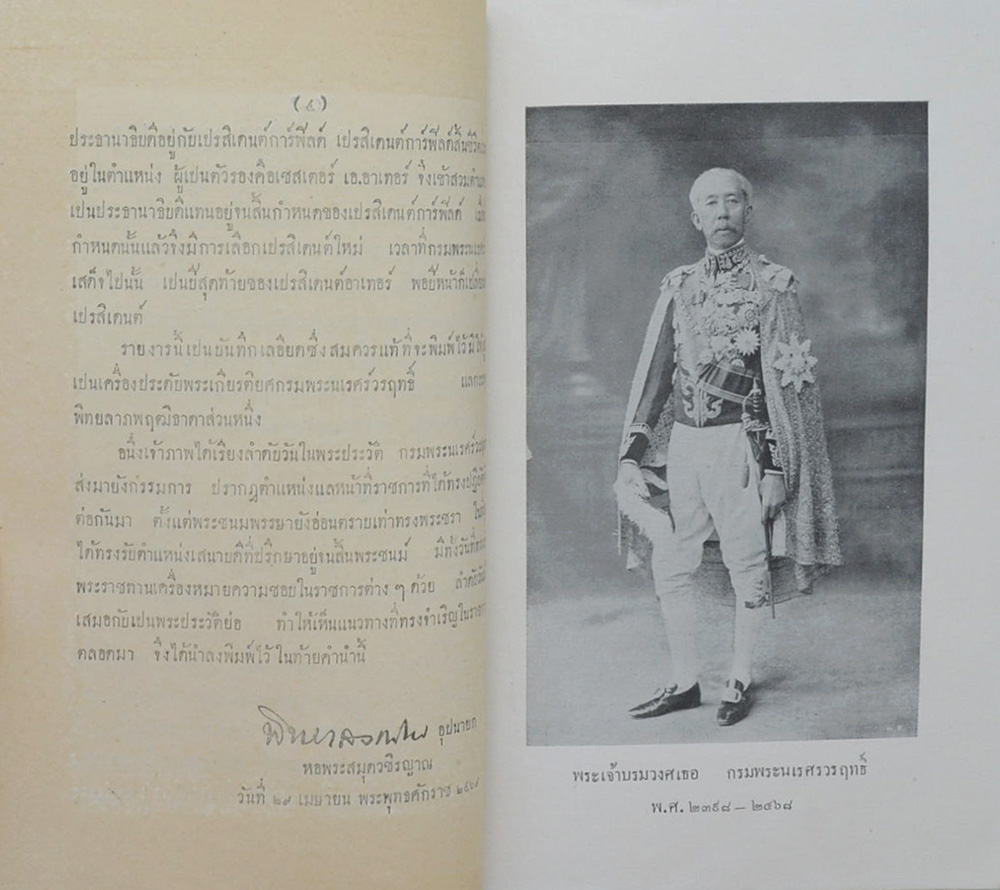 (๕)
ประธานาธิบดีอยู่กับเปรสิเดนต์การ์ฟีลด์ เปรสิเดนต์การ์ฟีลด์สิ้นชีวิต
อยู่ในตำแหน่ง ผู้เปนตัวรองคือเชสเตอร์ เอ.อาเทอร์ จึงเข้าสวม
เปนประธานาธิบดีแทนอยู่จนสิ้นกำหนดของเปรสิเดนต์การ์ฟีลด์
กำหนดนั้นแล้วจึงมีการเลือกเปรสิเดนต์ใหม่ เวลาที่กรมพระ
เสด็จไปนั้น เปนปีสุดท้ายของเปรสิเดนต์อาเทอร์ พอปีหน้าก็
เปรสิเดนต์
รายงานนี้เปนบันทึกเลอียดซึ่งสมควรแท้ที่จะพิมพ์ไว้มิให้
เปนเครื่องประดับพระเกียรติยศกรมพระนเรศร์วรฤทธิ์
พิทยลาภพฤฒิธาดาส่วนหนึ่ง
อนึ่งเจ้าภาพได้เรียงลำดับวันในพระประวัติ กรมพระนเรศร์
ส่งมายังกรรมการ ปรากฎตำแหน่งแลหน้าที่ราชการที่ได้ทรง
ต่อกันมา ตั้งแต่พระชนมพรรษายังอ่อนตราบเท่าทรงพระชรา
ได้ทรงรับตำแหน่งเสนาบดีที่ปรึกษาอยู่จนสิ้นพระชนม์ มีทั้งวันที่
พระราชทานเครื่องหมายความชอบในราชการต่าง ๆ ด้วย
เสมอกับเปนพระประวัติย่อ ทำให้เห็นแนวทางที่ทรงจำเริญใน
ตลอดมา จึงได้นำลงพิมพ์ไว้ ในท้ายคำนำนี้
อุปนายก
หอพระสมุดวชิรญาณ
วันที่ ๒๙ เมษายน พระพุทธศักราช ๒๔๖๙
พระเจ้าบรมวงศเธอ กรมพระนเรศรวรฤทธิ์
พ.ศ. ๒๓๙๘ – ๒๔๖๘